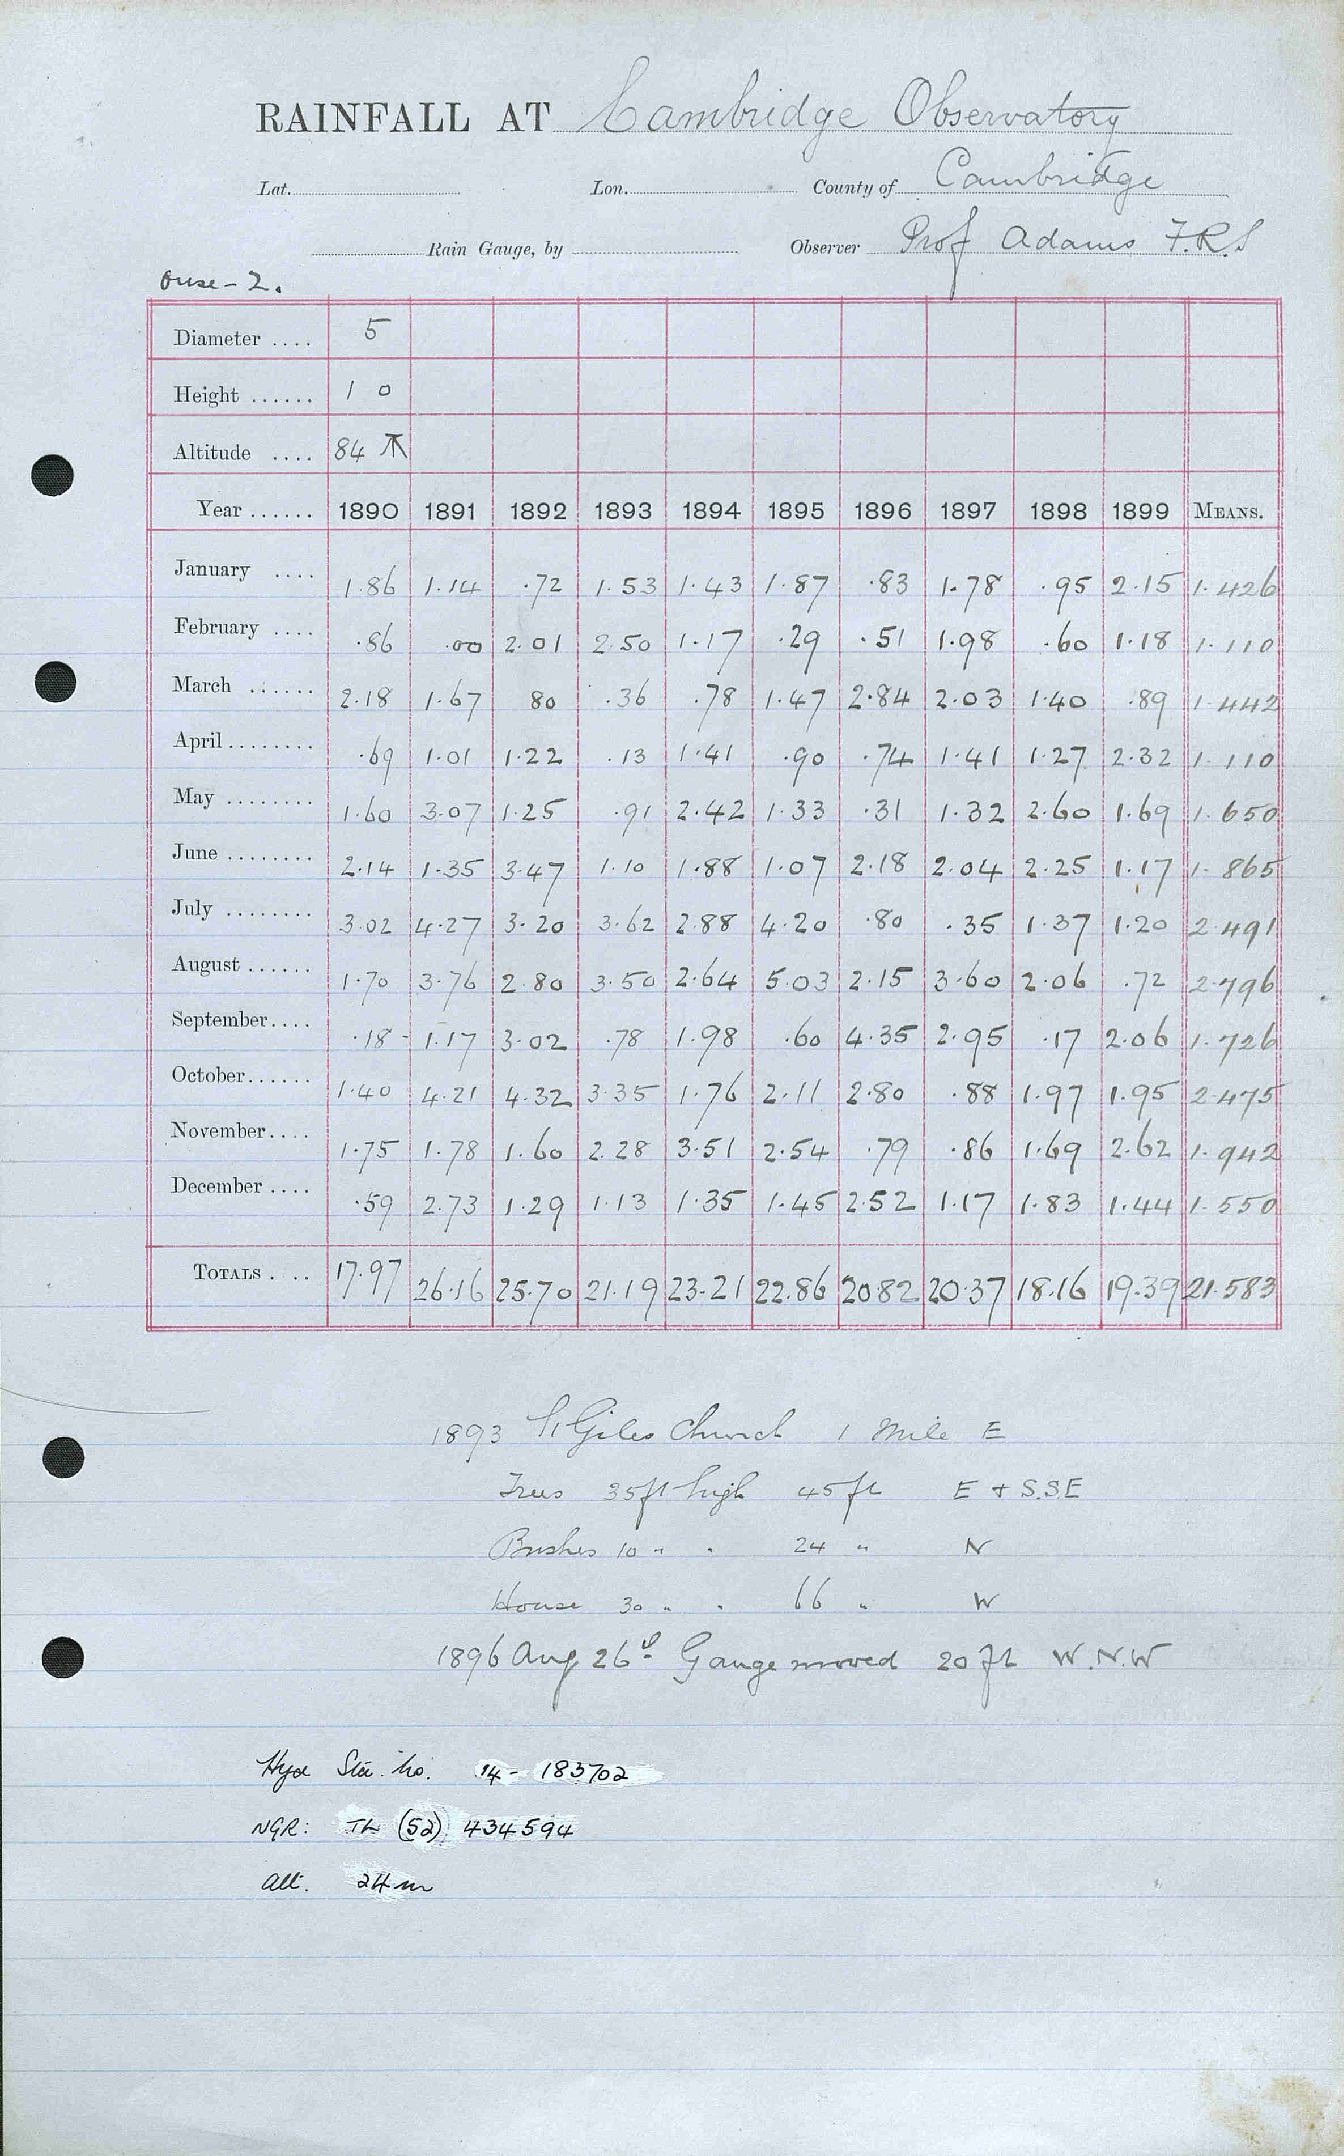 RAINFALL AT Cambridge Observatory
Lat. Lon. County of Cambridge
Rain Gauge, by Observer Prof Adams F.R.S
Ouse - 2.
Diameter .... 5
Height ...... 1 0
Altitude .... 84
Year ...... 1890 1891 1892 1893 1894 1895 1896 1897 1898 1899 MEANS.
January .... 1.86 1.14 .72 1.53 1.43 1.87 .83 1.78 .95 2.15 1.426
February .... .86 .00 2.01 2.50 1.17 .29 .51 1.98 .60 1.18 1.110
March ...... 2.18 1.67 80 .36 .78 1.47 2.84 2.03 1.40 .89 1.442
April ........ .69 1.01 1.22 .13 1.41 .90 .74 1.41 1.27 2.32 1.110
May ........ 1.60 3.07 1.25 .91 2.42 1.33 .31 1.32 2.60 1.69 1.650
June ........ 2.14 1.35 3.47 1.10 1.88 1.07 2.18 2.04 2.25 1.17 1.865
July ........ 3.02 4.27 3.20 3.62 2.88 4.20 .80 .35 1.37 1.20 2.491
August ...... 1.70 3.76 2.80 3.50 2.64 5.03 2.15 3.60 2.06 .72 2.796
September.... .18 1.17 3.02 .78 1.98 .60 4.35 2.95 .17 2.06 1.726
October...... 1.40 4.21 4.32 3.35 1.76 2.11 2.80 .88 1.97 1.95 2.475
November.... 1.75 1.78 1.60 2.28 3.51 2.54 .79 .86 1.69 2.62 1.942
December .... .59 2.73 1.29 1.13 1.35 1.45 2.52 1.17 1.83 1.44 1.550
TOTALS . .. 17.97 26.16 25.70 21.19 23.21 22.86 20.82 20.37 18.16 19.39 21.583
1893 St Giles Church 1 Mile E
Trees 35ft high 45 ft E + S.S.E
Bushes 10 " " 24 " N
House 30 " " 66 " W
1896 Aug 26th Gauge moved 20 ft W.N.W
Hyd Sta. No. 14 - 183702
NGR: TL (52) 434594
Alt. 24 m